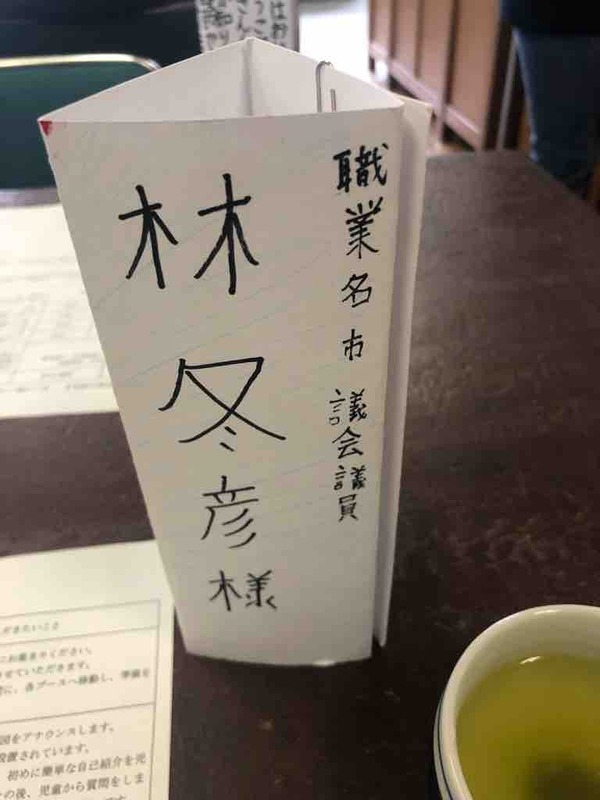 職業名市議会議員
林冬彦様
だきたいこと
にお集まりください。
させていただきます。
に、各ブースへ移動し、準備を
図をアナウンスします。
設置されています。
初めに簡単な自己紹介を児
の後、児童から質問をしま